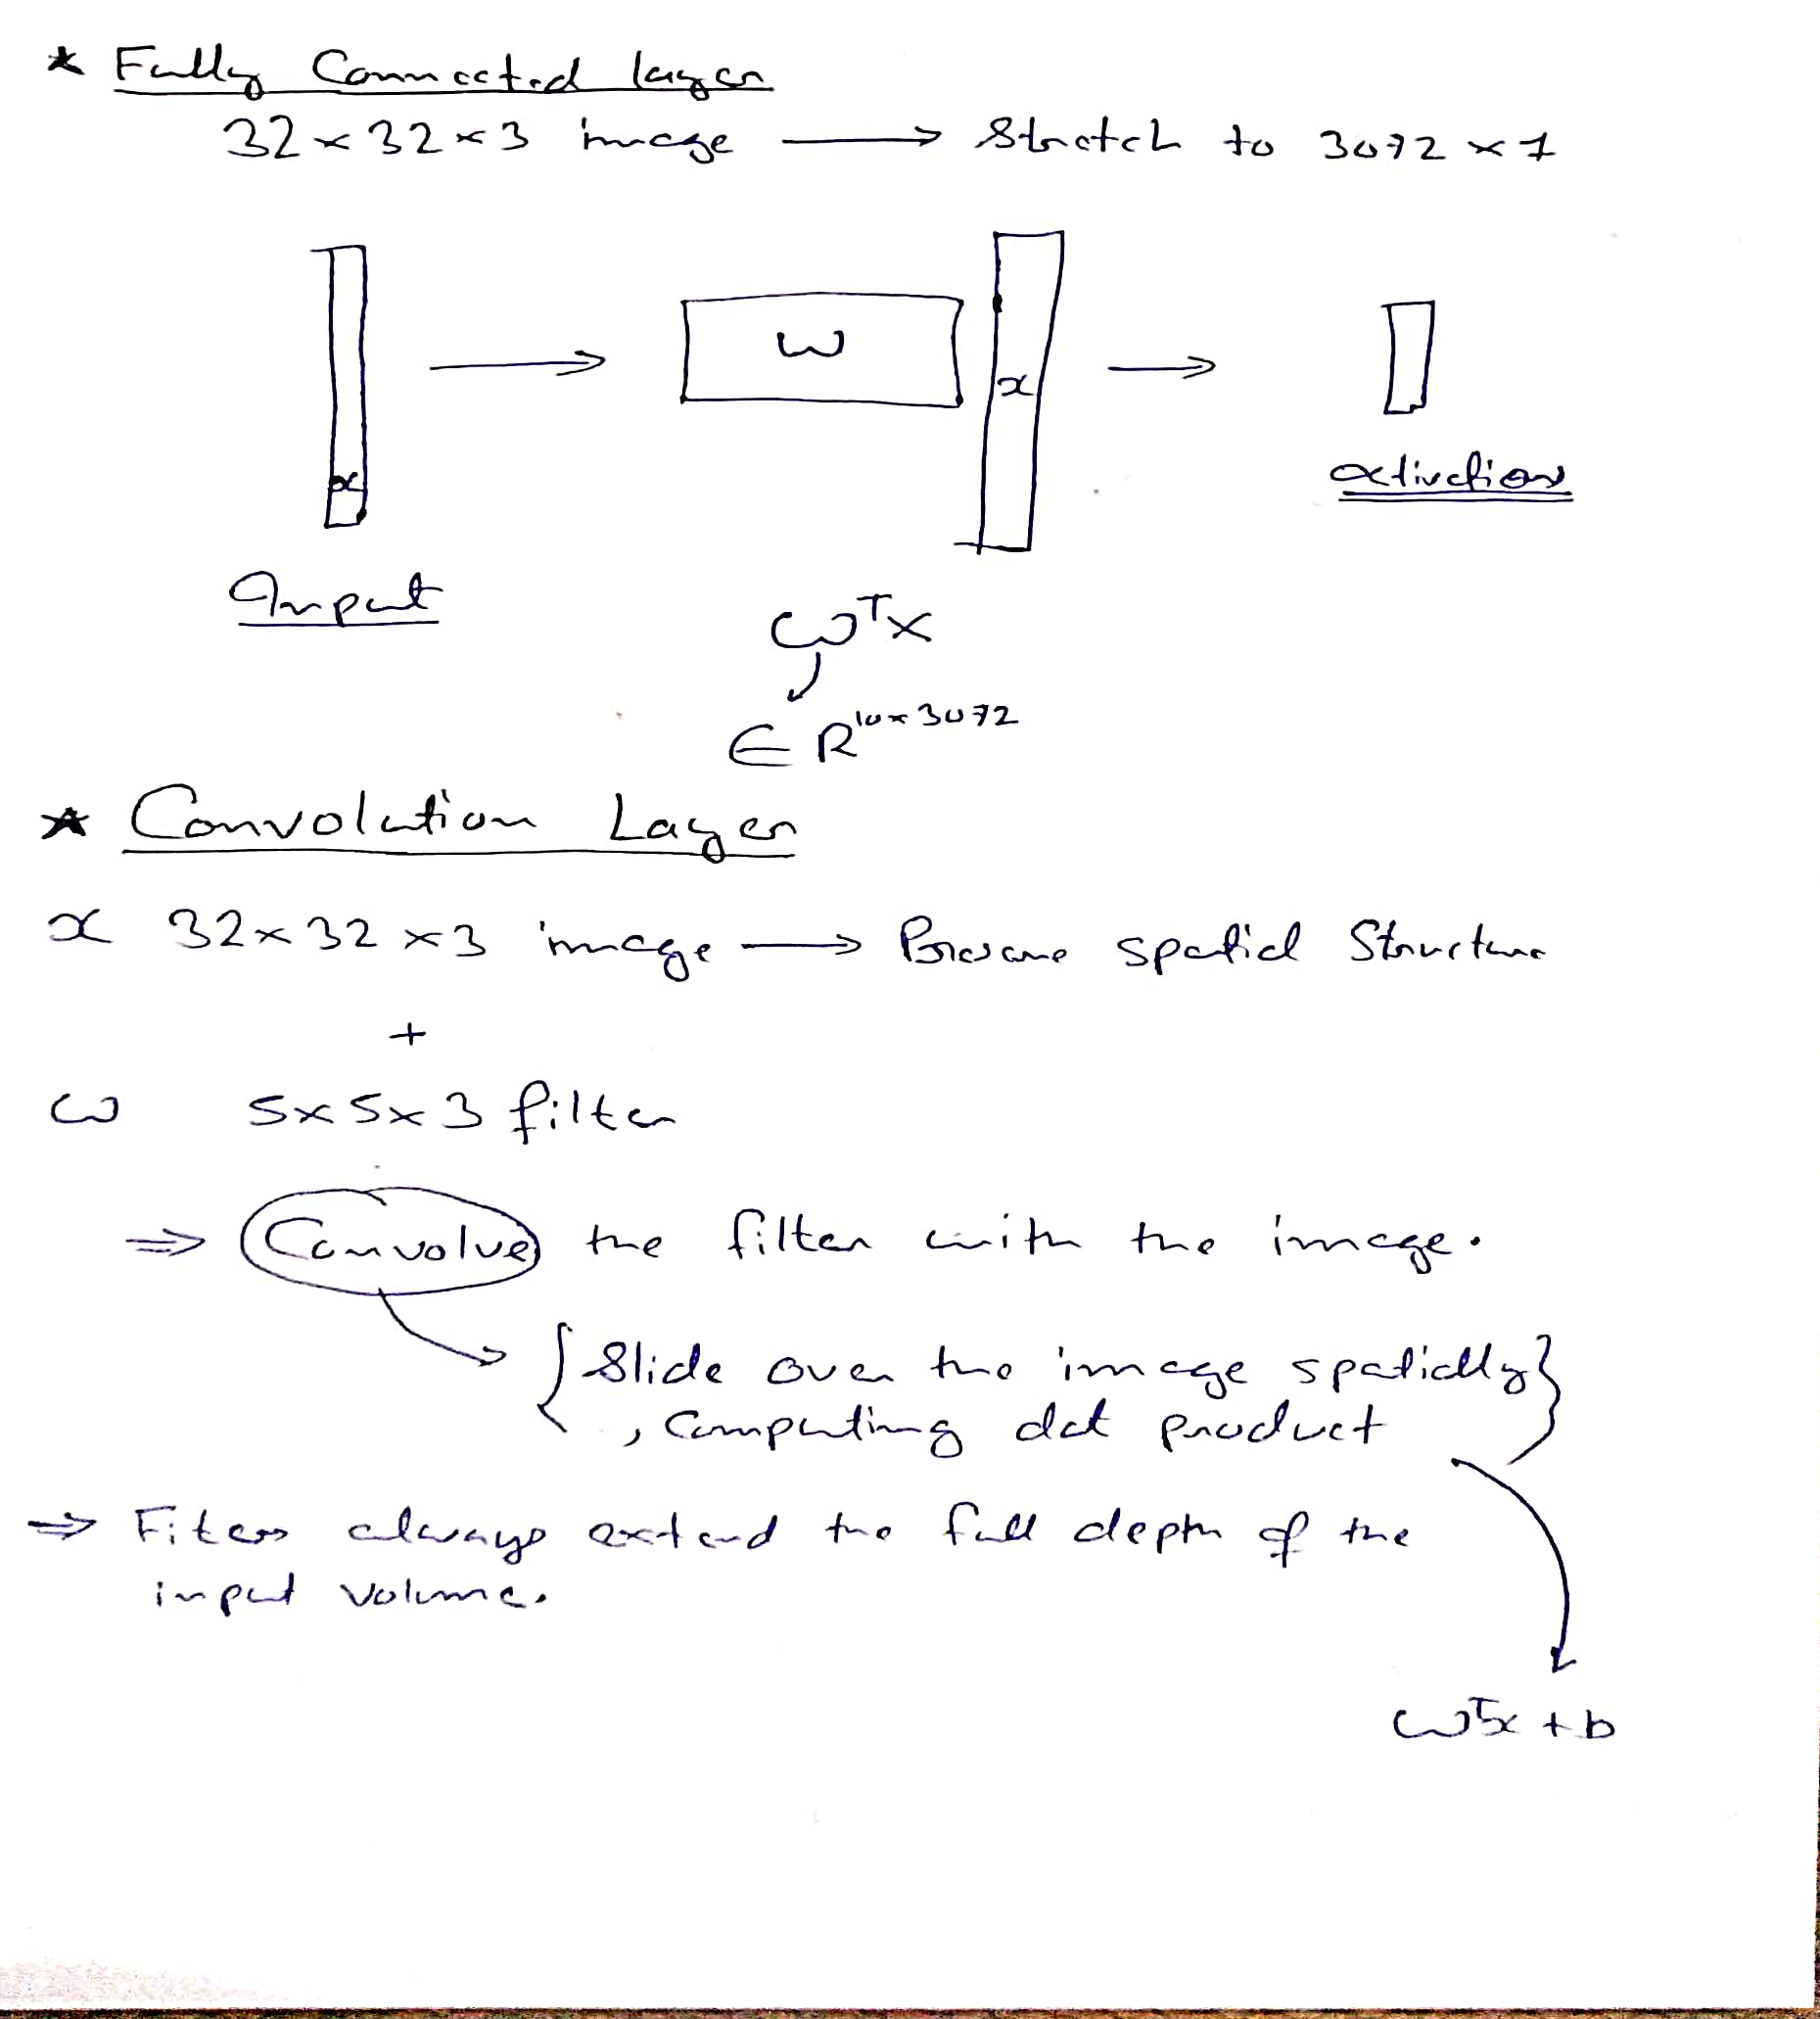 * Fully Connected layer
32 × 32 × 3 image ⟶ Stretch to 3072 × 1
W
x
x
activation
Input
WᵀX
∈ R¹⁰ˣ³⁰⁷²
* Convolution Layer
x 32 × 32 × 3 image ⟶ Preserve spatial Structure
+
w 5 × 5 × 3 filter
⇒ Convolve the filter with the image.
{ Slide over the image spatially }
, Computing dot product
⇒ Fiters always extend the full depth of the
input volume.
wᵀx + b